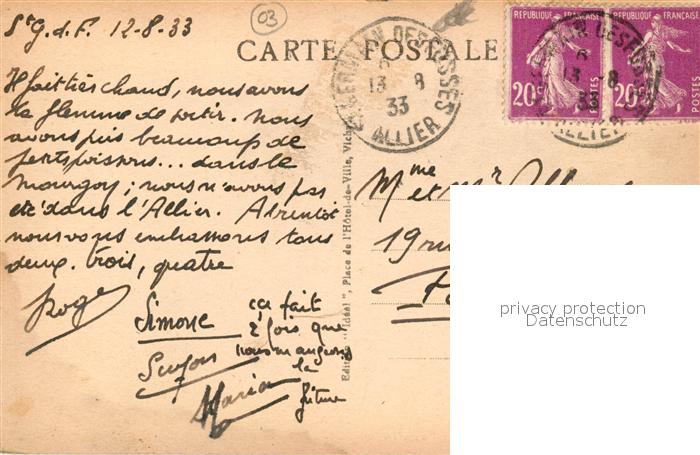 St G. d. F. 12-8-33
03
CARTE POSTALE
ST GERMAIN DES FOSSES
6
13 8
33
ALLIER
REPUBLIQUE FRANÇAISE
20c
POSTES
REPUBLIQUE FRANÇAISE
20c
POSTES
Il fait très chaud, nous avons
la flemme de sortir. Nous
avons pris beaucoup de
petits poissons... dans le
Mourgoy; nous n'avons pas
été dans l'Allier. A bientôt
nous vous embrassons tous
deux. trois, quatre
Roger
Simone
Maria
ça fait
2 fois que
nous mangeons
la
friture
Editions "Idéal", Place de l'Hôtel-de-Ville, Vichy
Mme et Mr
19 rue
privacy protection
Datenschutz